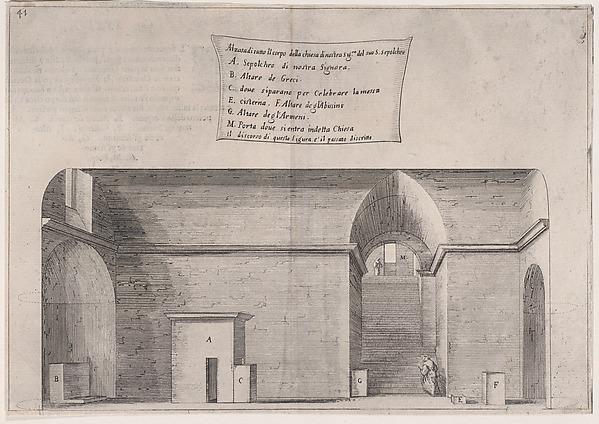 41
Alzata di tutto il corpo della chiesa di nostra Sig.ra del suo S. sepolchro
A. Sepolchro di nostra Signora.
B. Altare de Greci.
C. doue siparano per Celebrare la messa
E. cisterna. F. Altare degl'Abissini
G. Altare degl'Armeni.
M. Porta doue sientra indetta Chiesa
il discorso di questa figura e' il passato discritto
M
A
B
C
G
E
F